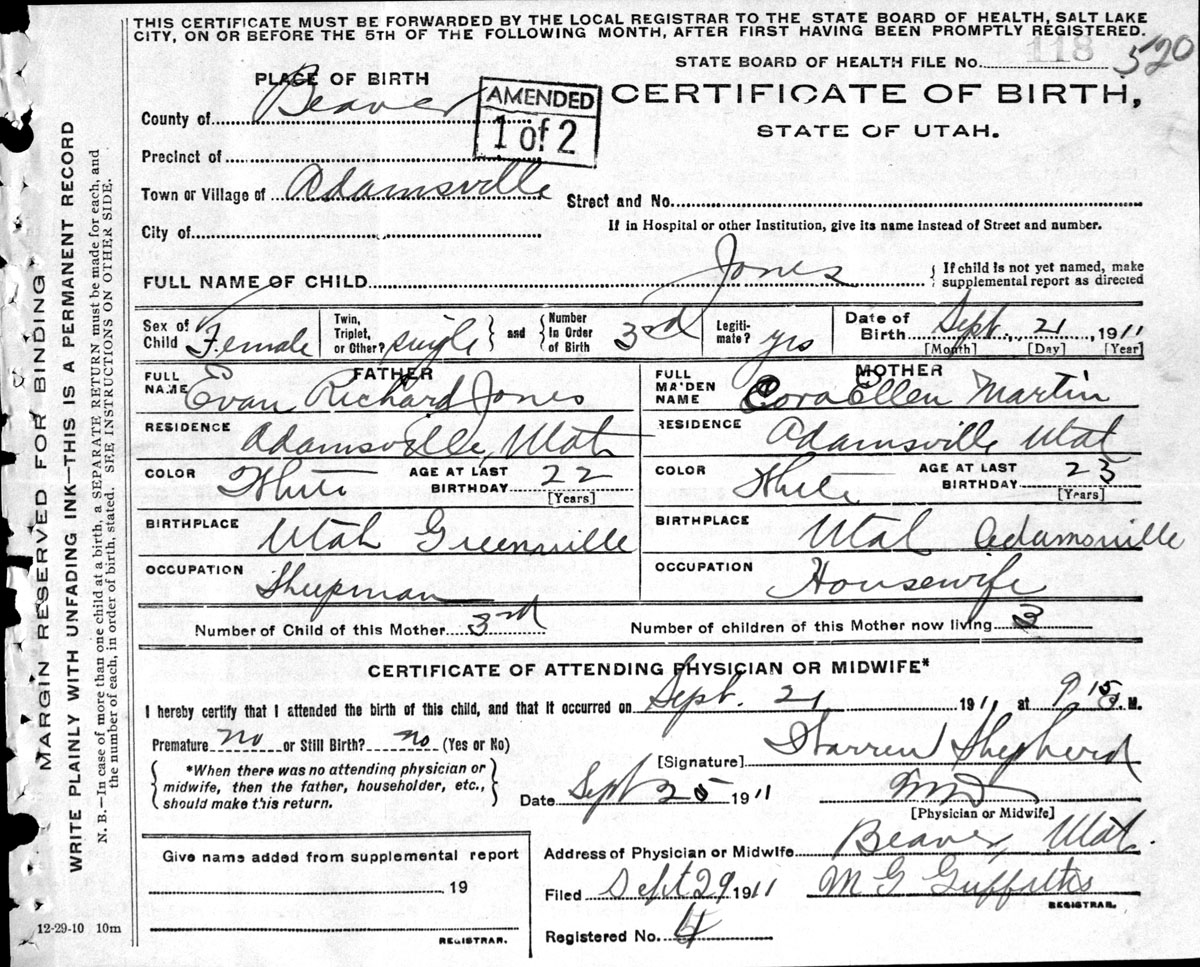 THIS CERTIFICATE MUST BE FORWARDED BY THE LOCAL REGISTRAR TO THE STATE BOARD OF HEALTH, SALT LAKE
CITY, ON OR BEFORE THE 5TH OF THE FOLLOWING MONTH, AFTER FIRST HAVING BEEN PROMPTLY REGISTERED.
STATE BOARD OF HEALTH FILE No. 118 520
PLACE OF BIRTH
AMENDED
1 of 2
CERTIFICATE OF BIRTH,
STATE OF UTAH.
County of Beaver
Precinct of
Town or Village of Adamsville
Street and No.
City of
If in Hospital or other Institution, give its name instead of Street and number.
FULL NAME OF CHILD Jones
If child is not yet named, make
supplemental report as directed
Sex of Child Female
Twin, Triplet, or Other? single
and
Number in Order of Birth 3rd
Legitimate? yes
Date of Birth Sept. 21, 1911
[Month] [Day] [Year]
FATHER
FULL NAME Evan Richard Jones
RESIDENCE Adamsville, Utah
COLOR White
AGE AT LAST BIRTHDAY 22
[Years]
BIRTHPLACE Utah Greenville
OCCUPATION Sheepman
MOTHER
FULL MAIDEN NAME Cora Ellen Martin
RESIDENCE Adamsville Utah
COLOR White
AGE AT LAST BIRTHDAY 23
[Years]
BIRTHPLACE Utah Adamsville
OCCUPATION Housewife
Number of Child of this Mother 3rd
Number of children of this Mother now living 3
CERTIFICATE OF ATTENDING PHYSICIAN OR MIDWIFE*
I hereby certify that I attended the birth of this child, and that it occurred on Sept. 21 1911 at 9 15 M.
Premature no or Still Birth? no (Yes or No)
*When there was no attending physician or
midwife, then the father, householder, etc.,
should make this return.
[Signature] Warren Shepherd
Date Sept 25 1911
MD
[Physician or Midwife]
Address of Physician or Midwife Beaver, Utah.
Filed Sept. 29 1911 M G Griffiths
REGISTRAR.
Registered No. 4
Give name added from supplemental report
19
REGISTRAR.
12-29-10 10m
MARGIN RESERVED FOR BINDING
WRITE PLAINLY WITH UNFADING INK—THIS IS A PERMANENT RECORD
N. B.—In case of more than one child at a birth, a SEPARATE RETURN must be made for each, and
the number of each, in order of birth, stated. SEE INSTRUCTIONS ON OTHER SIDE.